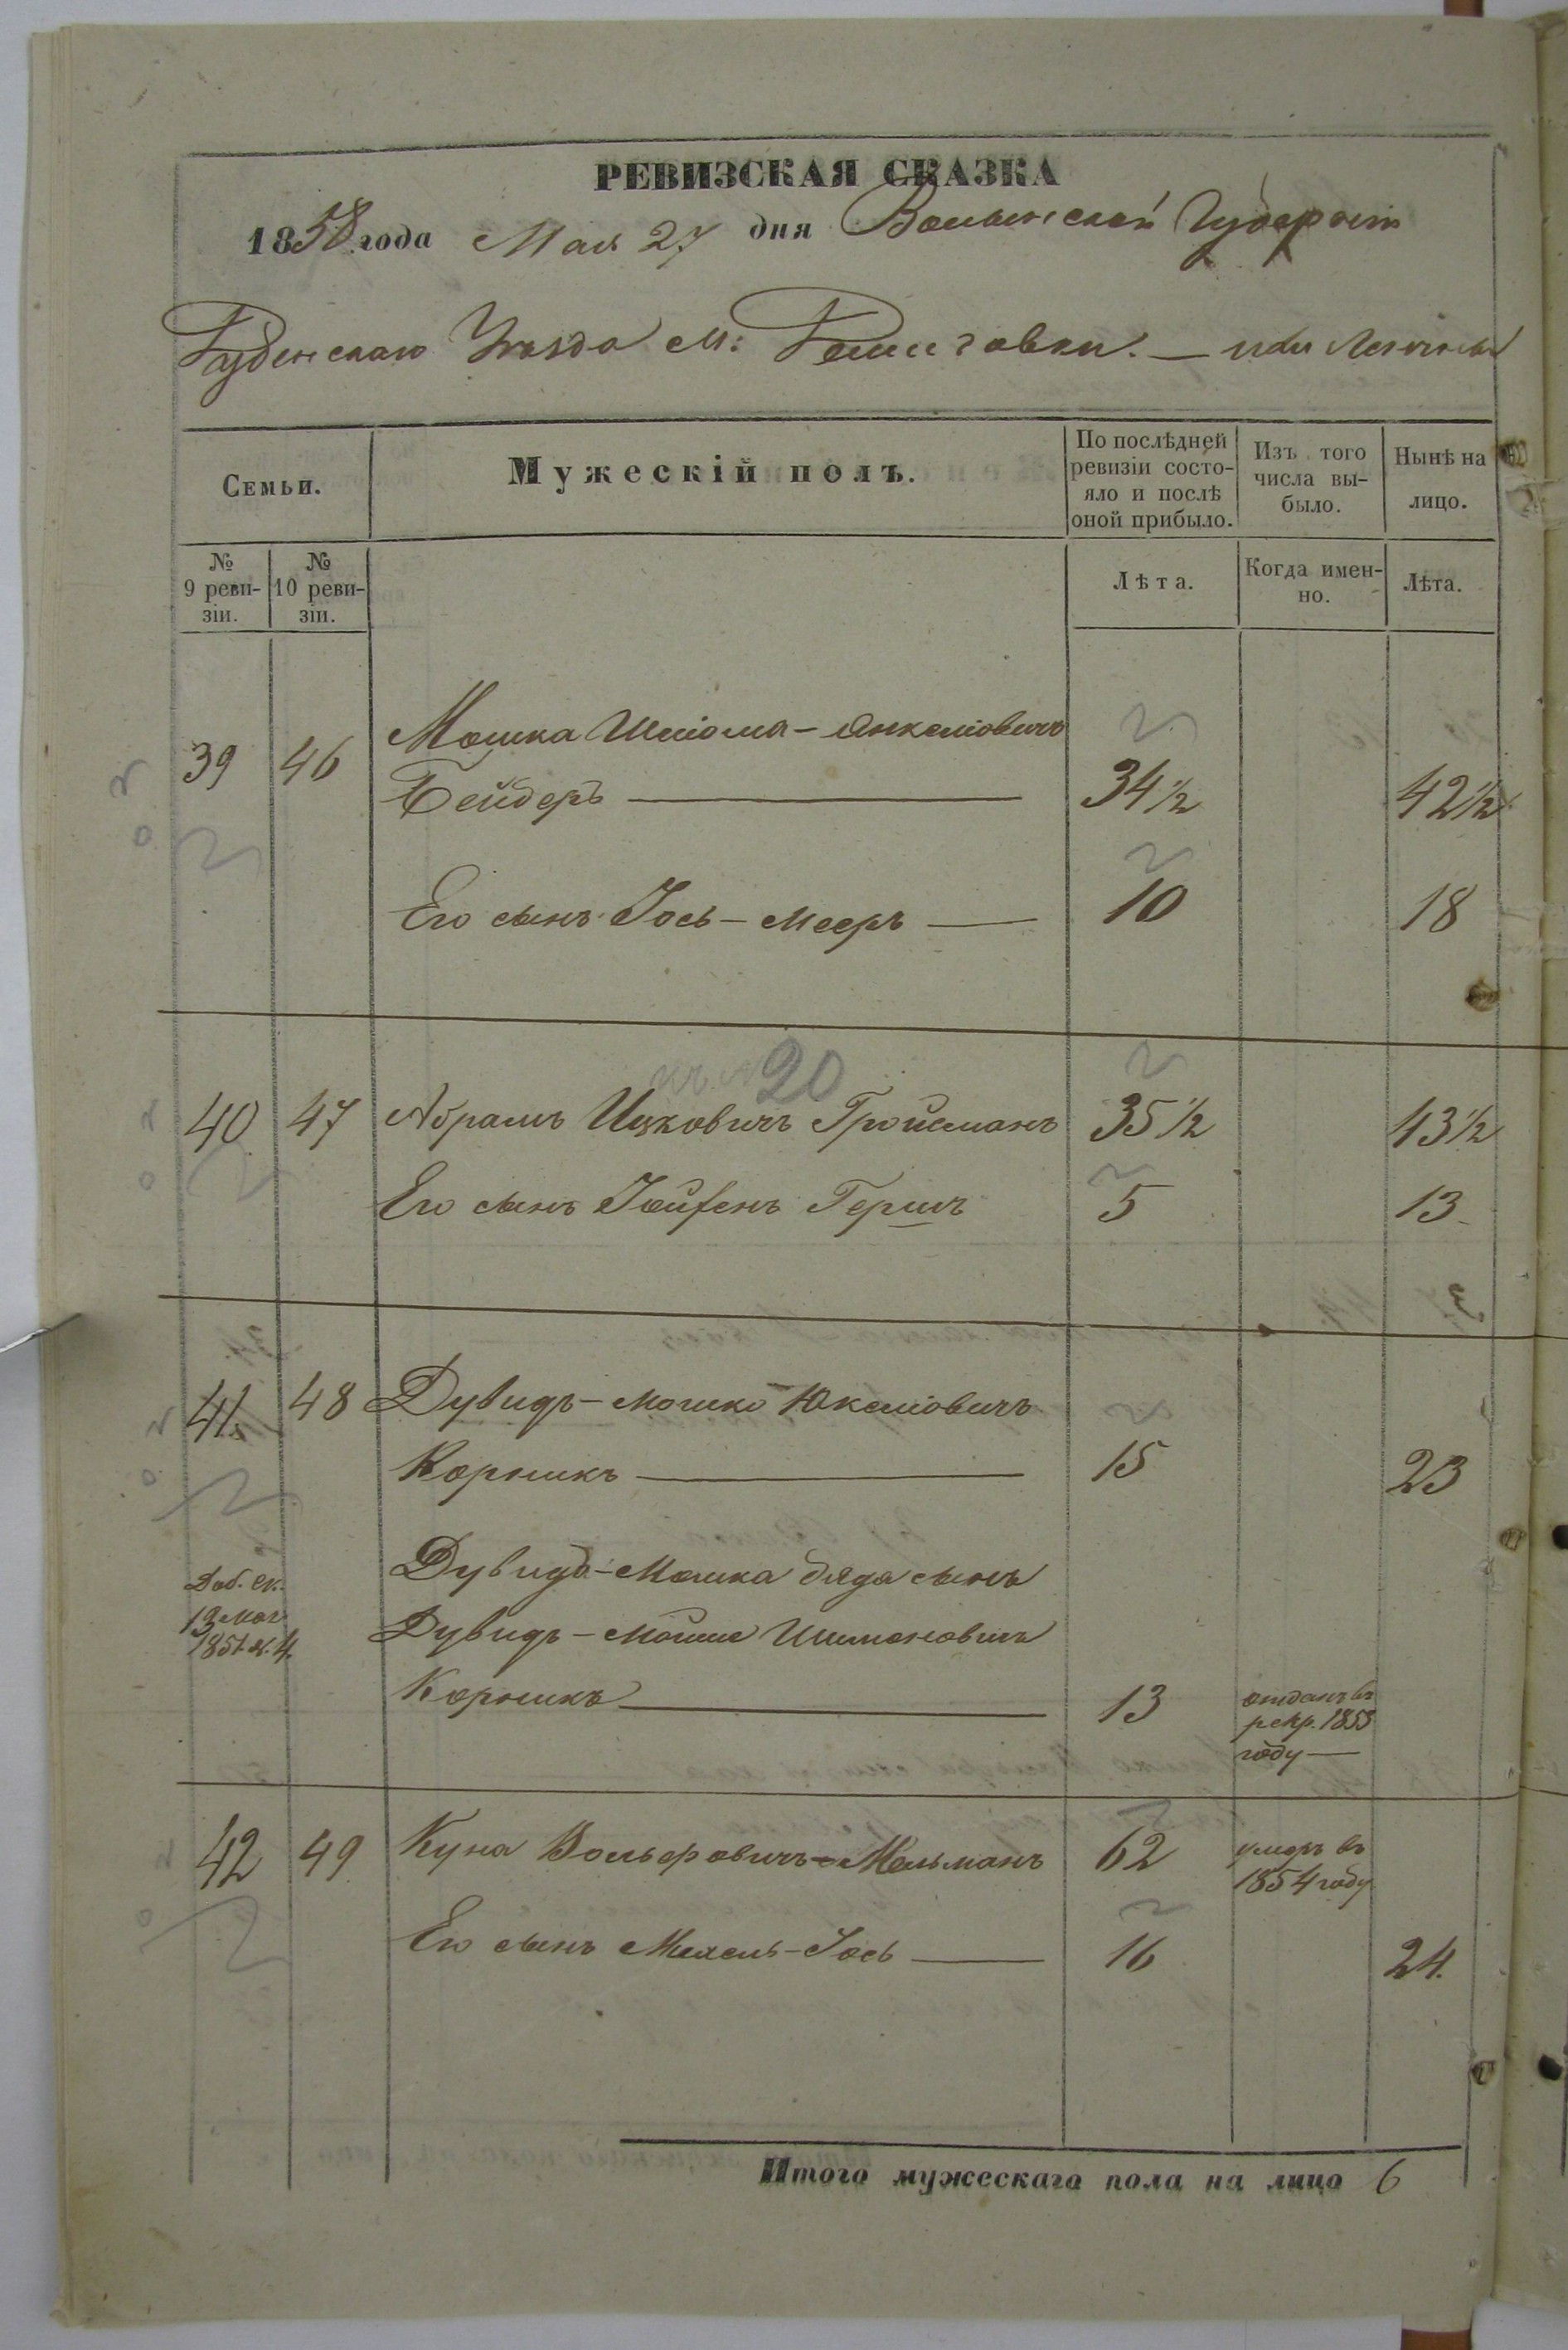 РЕВИЗСКАЯ СКАЗКА
1858 года Мая 27 дня Волынской Губерніи
м:
Семьи.
Мужескій полъ.
По послѣдней ревизіи состо-
яло и послѣ
оной прибыло.
Изъ того
числа вы-
было.
Нынѣ на
лицо.
№
9 реви-
зіи.
№
10 реви-
зіи.
Лѣта.
Когда имен-
но.
Лѣта.
Мошка Шлiома-Янкелiовичъ
39 46 Бейдеръ 34½ 42½
Его сынъ Іось-Мееръ 10 18
20
40 47 Абрамъ Ицковичъ Гройсманъ 35½ 43½
Его сынъ Герш 5 13
41 48 Дувидъ-Мошко Юкелiовичъ
Коршикъ 15 23
Дувида-Мошка дяда сынъ
Доб. ск.
13 мая
1851 № 4.
Дувидъ-Мойше Шимоновичъ
Коршикъ 13 отданъ въ
рекр. 1853
году
42 49 Куна Вольфовичъ-Мельманъ 62 умеръ въ
1854 году
Его сынъ Михель-Іось 16 24.
Итого мужескаго пола на лицо 6